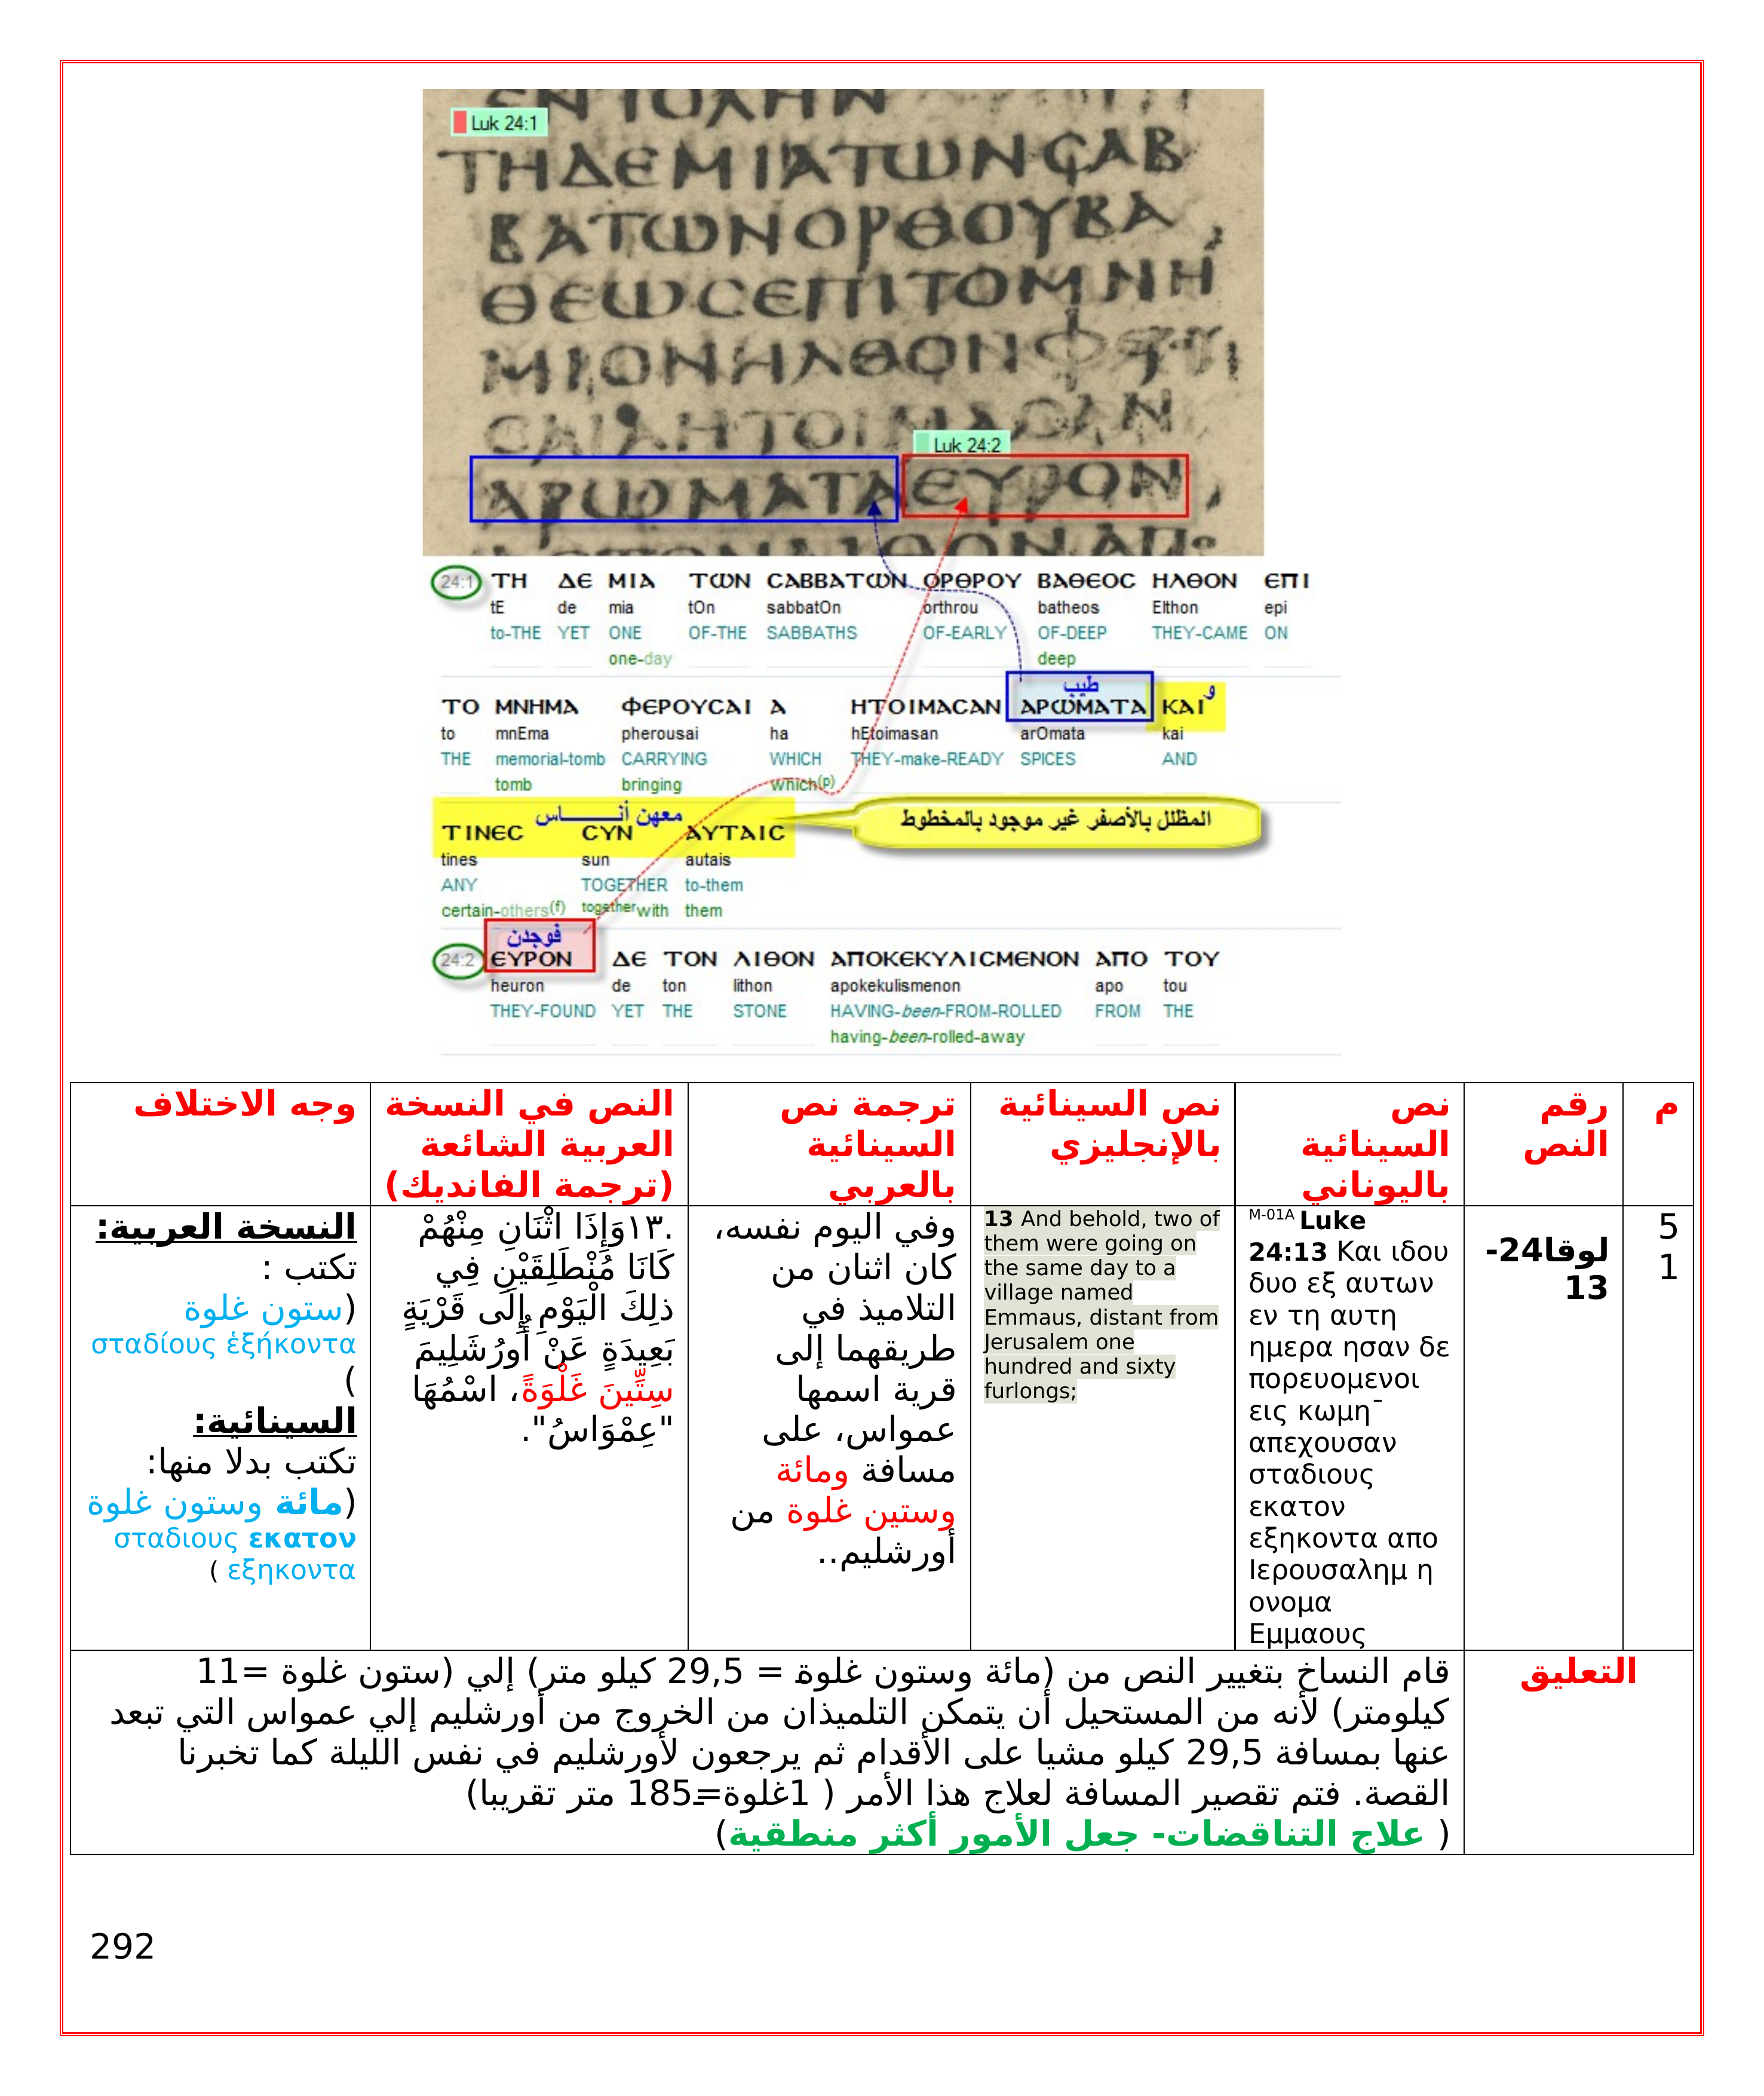 Luk 24:1
ΤΗΔΕΜΙΑΤΩΝϹΑΒ
ΒΑΤΩΝΟΡΘΟΥΒΑ
ΘΕΩϹΕΠΙΤΟΜΝΗ
ΜΙΟΝΗΛΘΟΝΦΕΡΟΥ
ϹΑΙΑΗΤΟΙΜΑϹΑΝ
Luk 24:2
ΑΡΩΜΑΤΑΕΥΡΟΝ
24:1 ΤΗ ΔΕ ΜΙΑ ΤΩΝ ϹΑΒΒΑΤΩΝ ΟΡΘΡΟΥ ΒΑΘΕΟϹ ΗΛΘΟΝ ΕΠΙ
tE de mia tOn sabbatOn orthrou batheos Elthon epi
to-THE YET ONE OF-THE SABBATHS OF-EARLY OF-DEEP THEY-CAME ON
one-day deep
طيب و
ΤΟ ΜΝΗΜΑ ΦΕΡΟΥϹΑΙ Α ΗΤΟΙΜΑϹΑΝ ΑΡΩΜΑΤΑ ΚΑΙ
to mnEma pherousai ha hEtoimasan arOmata kai
THE memorial-tomb CARRYING WHICH THEY-make-READY SPICES AND
tomb bringing which(p)
معهن أنــــــاس
المظلل بالأصفر غير موجود بالمخطوط
ΤΙΝΕϹ ϹΥΝ ΑΥΤΑΙϹ
tines sun autais
ANY TOGETHER to-them
certain-others(f) together with them
فوجدن
24:2 ΕΥΡΟΝ ΔΕ ΤΟΝ ΛΙΘΟΝ ΑΠΟΚΕΚΥΛΙϹΜΕΝΟΝ ΑΠΟ ΤΟΥ
heuron de ton lithon apokekulismenon apo tou
THEY-FOUND YET THE STONE HAVING-been-FROM-ROLLED FROM THE
having-been-rolled-away
م
رقم
النص
نص
السينائية
باليوناني
نص السينائية
بالإنجليزي
ترجمة نص
السينائية
بالعربي
النص في النسخة
العربية الشائعة
(ترجمة الفانديك)
وجه الاختلاف
5
1
لوقا24-
13
M-01A Luke
24:13 Και ιδου
δυο εξ αυτων
εν τη αυτη
ημερα ησαν δε
πορευομενοι
εις κωμη¯
απεχουσαν
σταδιους
εκατον
εξηκοντα απο
Ιερουσαλημ η
ονομα
Εμμαους
13 And behold, two of
them were going on
the same day to a
village named
Emmaus, distant from
Jerusalem one
hundred and sixty
furlongs;
وفي اليوم نفسه،
كان اثنان من
التلاميذ في
طريقهما إلى
قرية اسمها
عمواس، على
مسافة ومائة
وستين غلوة من
أورشليم..
.١٣وَإِذَا اثْنَانِ مِنْهُمْ
كَانَا مُنْطَلِقَيْنِ فِي
ذلِكَ الْيَوْمِ إِلَى قَرْيَةٍ
بَعِيدَةٍ عَنْ أُورُشَلِيمَ
سِتِّينَ غَلْوَةً، اسْمُهَا
"عِمْوَاسُ".
النسخة العربية:
تكتب :
(ستون غلوة
σταδίους ἑξήκοντα
)
السينائية:
تكتب بدلا منها:
(مائة وستون غلوة
σταδιους εκατον
εξηκοντα )
التعليق
قام النساخ بتغيير النص من (مائة وستون غلوة = 29,5 كيلو متر) إلي (ستون غلوة =11
كيلومتر) لأنه من المستحيل أن يتمكن التلميذان من الخروج من أورشليم إلي عمواس التي تبعد
عنها بمسافة 29,5 كيلو مشيا على الأقدام ثم يرجعون لأورشليم في نفس الليلة كما تخبرنا
القصة. فتم تقصير المسافة لعلاج هذا الأمر ( 1غلوة=185 متر تقريبا)
( علاج التناقضات- جعل الأمور أكثر منطقية)
292